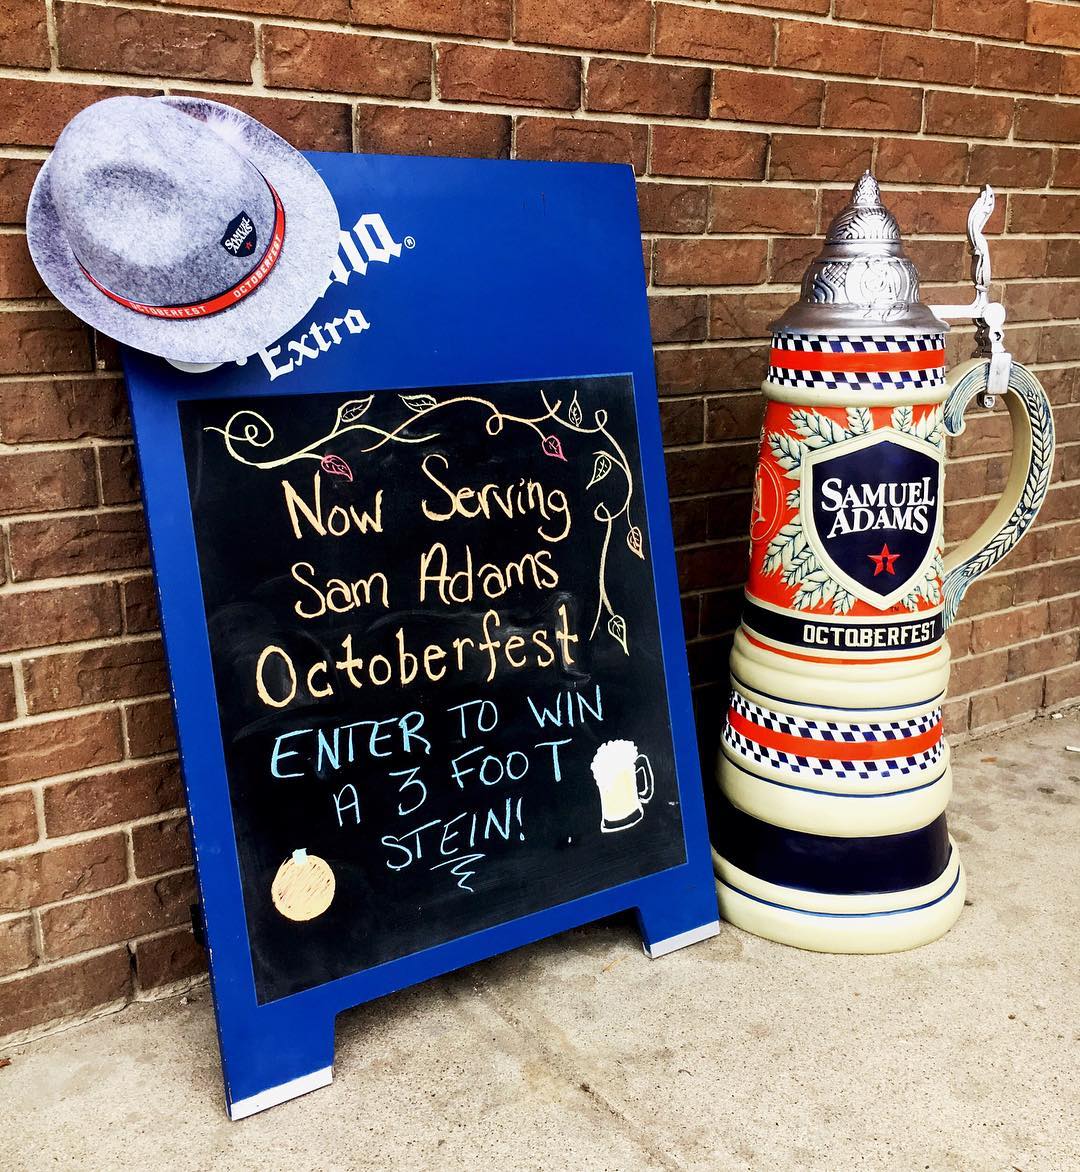 SAMUEL
ADAMS
OCTOBERFEST OCTOBERFEST
Extra
Now Serving
Sam Adams
Octoberfest
ENTER TO WIN
A 3 FOOT
STEIN!
SAMUEL
ADAMS
OCTOBERFEST